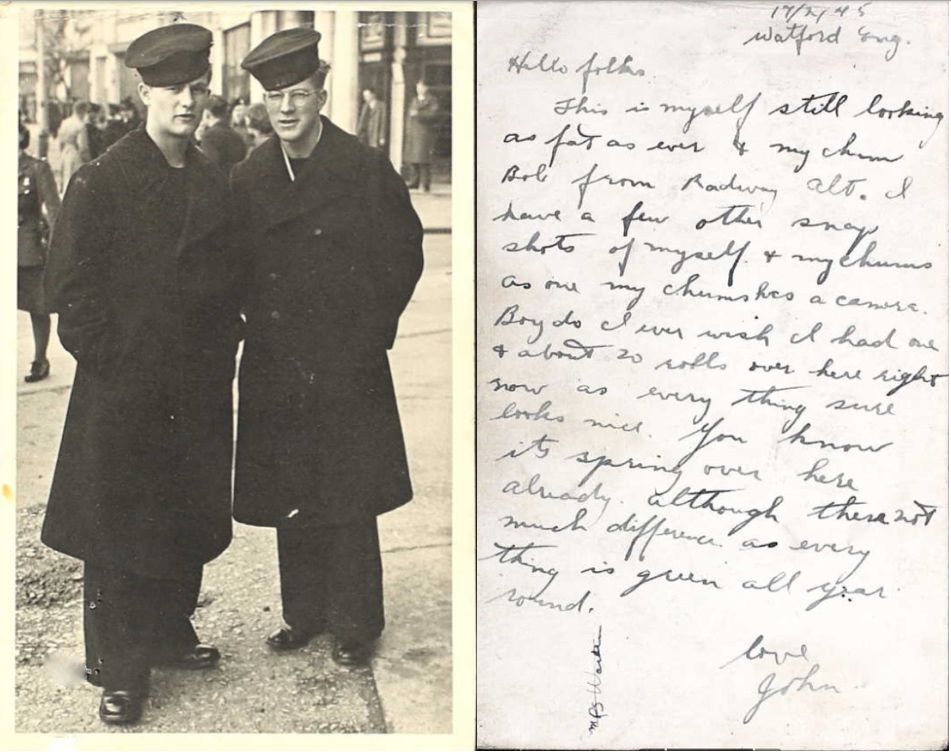 17/2/45
Watford Eng.
Hello folks
This is myself still looking
as fat as ever & my chum
Bob from Radway Alt. I
have a few other snap
shots of myself & my chums
as one my chums has a camera.
Boy do I ever wish I had one
& about 20 rolls over here right
now as every thing sure
looks nice. You know
its spring over here
already. although there not
much difference as every
thing is green all year
round.
love
John